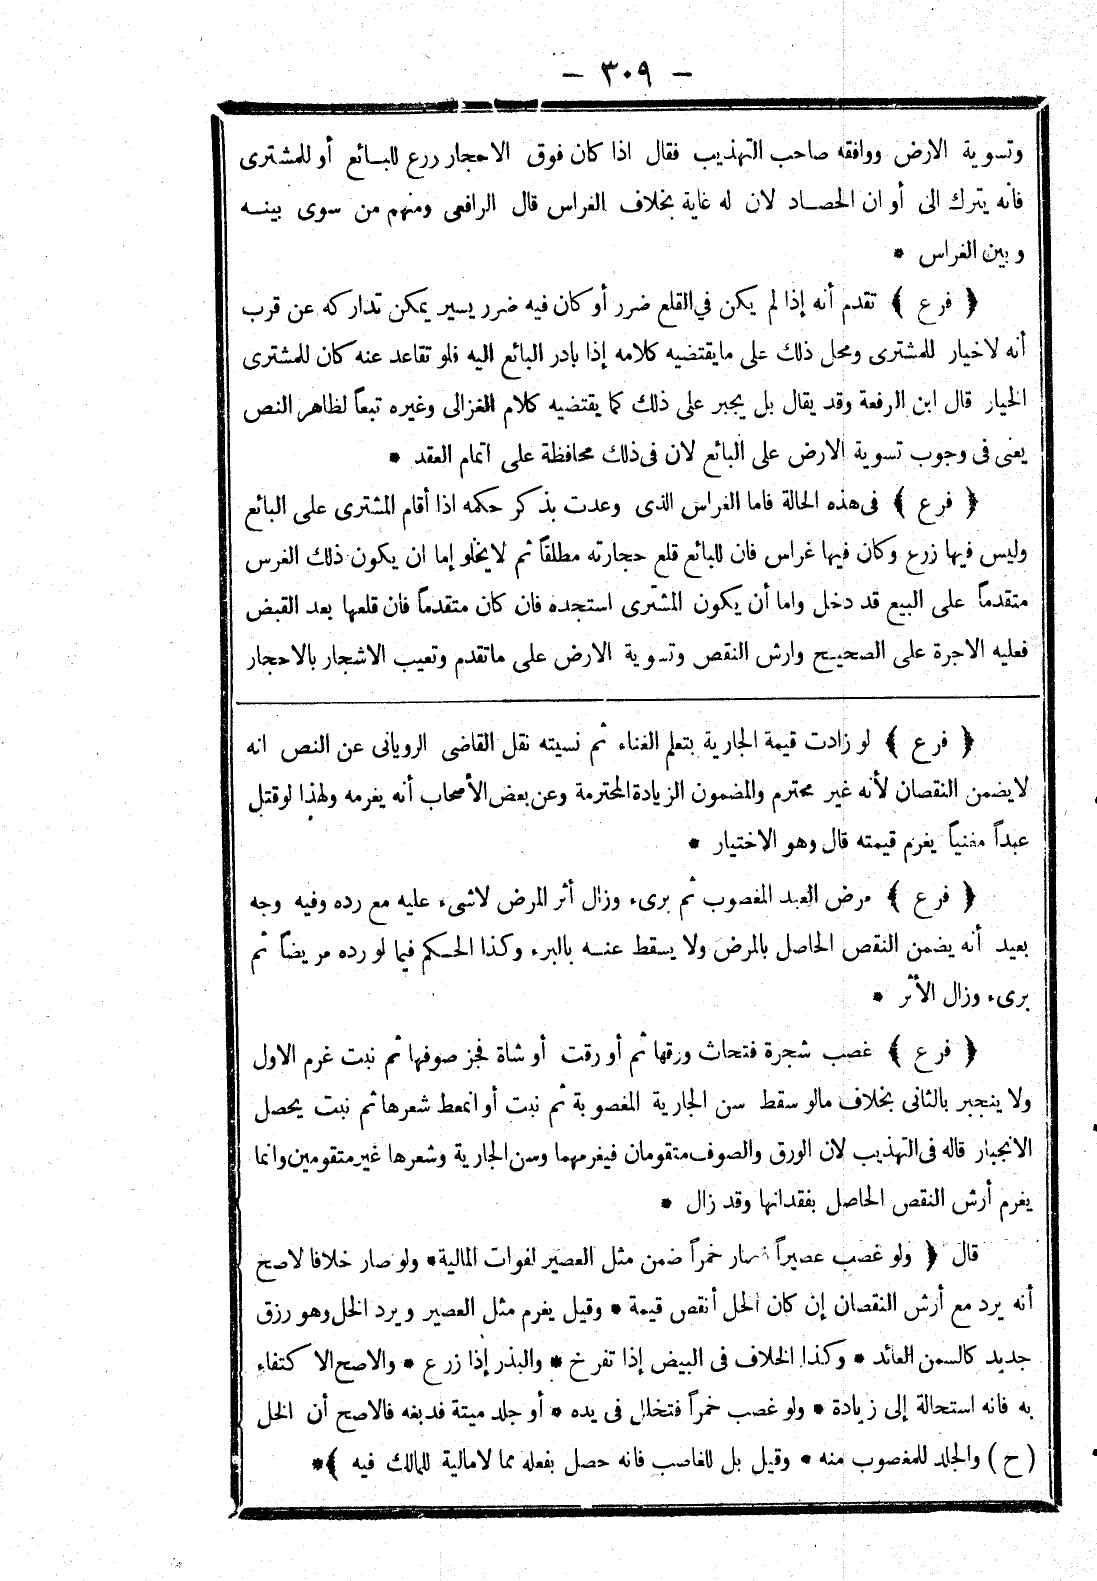 — ٣٠٩ —
وتسوية الارض ووافقه صاحب التهذيب فقال اذا كان فوق الاحجار زرع للبائع أو للمشترى
فانه يترك الى أو ان الحصاد لان له غاية بخلاف الغراس قال الرافعى ومنهم من سوى بينه
وبين الغراس *
﴿ فرع ﴾ تقدم أنه إذا لم يكن في القلع ضرر أو كان فيه ضرر يسير يمكن تداركه عن قرب
أنه لاخيار للمشترى ومحل ذلك على مايقتضيه كلامه إذا بادر البائع اليه فلو تقاعد عنه كان للمشترى
الخيار قال ابن الرفعة وقد يقال بل يجبر على ذلك كما يقتضيه كلام الغزالى وغيره تبعاً لظاهر النص
يعنى فى وجوب تسوية الارض على البائع لان فى ذلك محافظة على اتمام العقد *
﴿ فرع ﴾ فى هذه الحالة فاما الغراس الذى وعدت بذكر حكمه اذا أقام المشترى على البائع
وليس فيها زرع وكان فيها غراس فان للبائع قلع حجارته مطلقاً ثم لايخلو إما ان يكون ذلك الغرس
متقدماً على البيع قد دخل واما أن يكون المشترى استجده فان كان متقدماً فان قلعها بعد القبض
فعليه الاجرة على الصحيح وارش النقص وتسوية الارض على ماتقدم وتعيب الاشجار بالاحجار
﴿ فرع ﴾ لو زادت قيمة الجارية بتعلم الغناء ثم نسيته نقل القاضى الرويانى عن النص انه
لايضمن النقصان لأنه غير محترم والمضمون الزيادة المحترمة وعن بعض الأصحاب أنه يغرمه ولهذا لو قتل
عبداً مغنياً يغرم قيمته قال وهو الاختيار *
﴿ فرع ﴾ مرض العبد المغصوب ثم برىء وزال أثر المرض لاشىء عليه مع رده وفيه وجه
بعيد أنه يضمن النقص الحاصل بالمرض ولا يسقط عنه بالبرء وكذا الحكم فيما لو رده مريضاً ثم
برىء وزال الأثر *
﴿ فرع ﴾ غصب شجرة فتحاث ورقها ثم أورقت أو شاة فجز صوفها ثم نبت غرم الاول
ولا ينجبر بالثانى بخلاف مالو سقط سن الجارية المغصوبة ثم نبت أو انمعط شعرها ثم نبت يحصل
الانجبار قاله فى التهذيب لان الورق والصوف متقومان فيغرمهما وسن الجارية وشعرها غير متقومين وانما
يغرم أرش النقص الحاصل بفقدانها وقد زال *
قال ﴿ ولو غصب عصيراً فصار خمراً ضمن مثل العصير لفوات المالية * ولو صار خلافا لاصح
أنه يرد مع أرش النقصان إن كان الخل أنقص قيمة * وقيل يغرم مثل العصير ويرد الخل وهو رزق
جديد كالسمن العائد * وكذا الخلاف فى البيض إذا تفرخ * والبذر إذا زرع * والاصح الاكتفاء
به فانه استحالة إلى زيادة * ولو غصب خمراً فتخلل فى يده * أو جلد ميتة فدبغه فالاصح أن الخل
(ح) والجلد للمغصوب منه * وقيل بل للغاصب فانه حصل بفعله مما لامالية للمالك فيه ﴾*